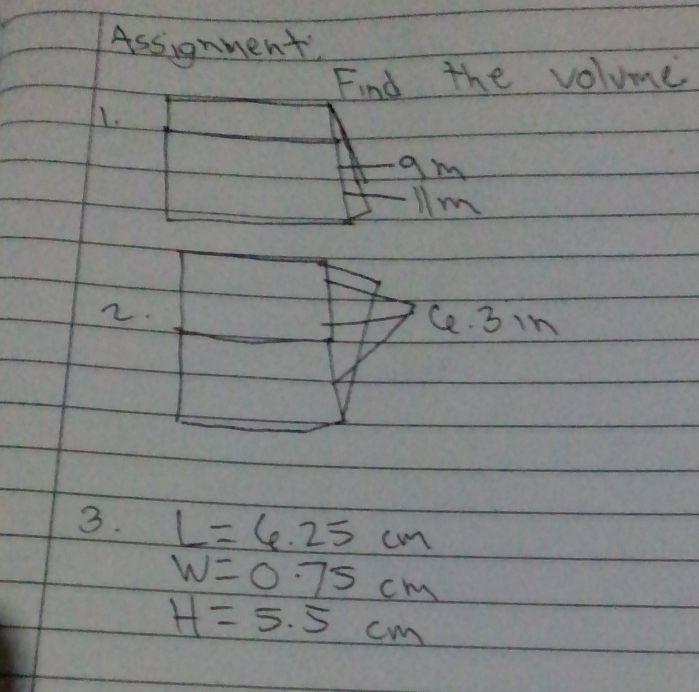 Assignment.
Find the volume
1.
9 m
11 m
2.
6.3 in
3. L = 6.25 cm
W = 0.75 cm
H = 5.5 cm